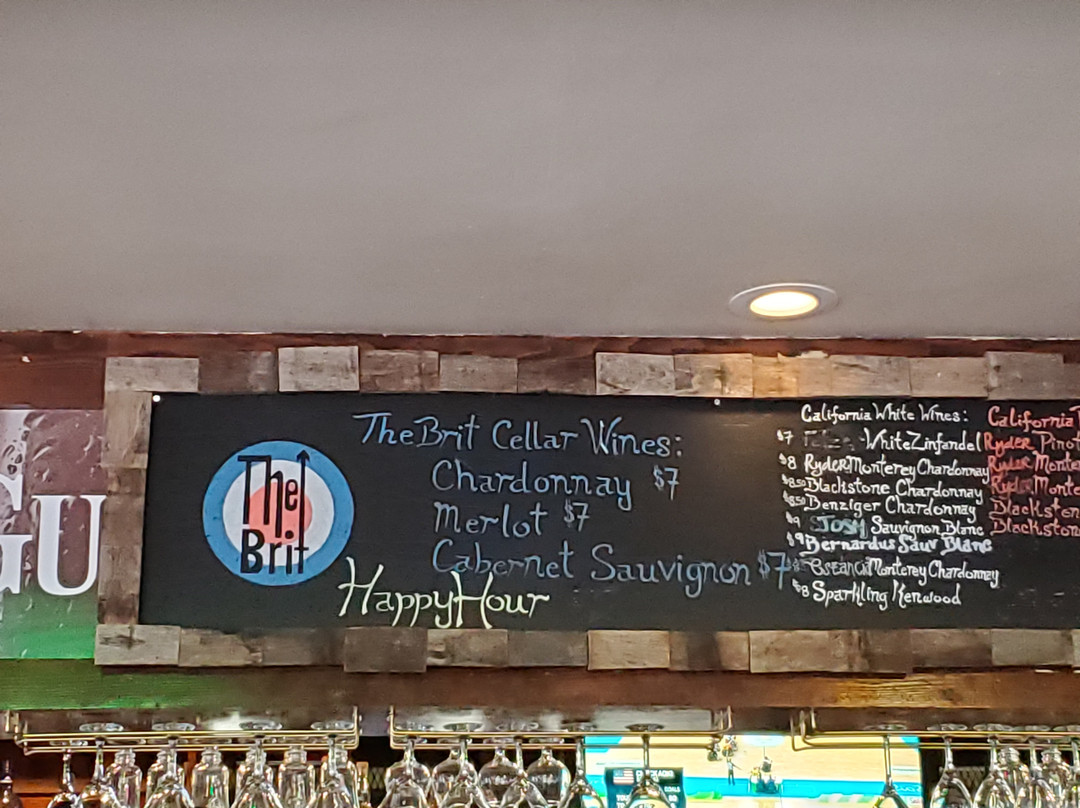 GU
The
Brit
The Brit Cellar Wines:
Chardonnay $7
Merlot $7
Cabernet Sauvignon $7
Happy Hour
California White Wines:
$7 White Zinfandel
$8 Ryder Monterey Chardonnay
$8.50 Blackstone Chardonnay
$8.50 Benziger Chardonnay
$9 JOSH Sauvignon Blanc
$9 Bernardus Sauv Blanc
Monterey Chardonnay
$8 Sparkling Kenwood
California
Ryder Pinot
Ryder Monte
Ryder Monte
Blackston
Blackston